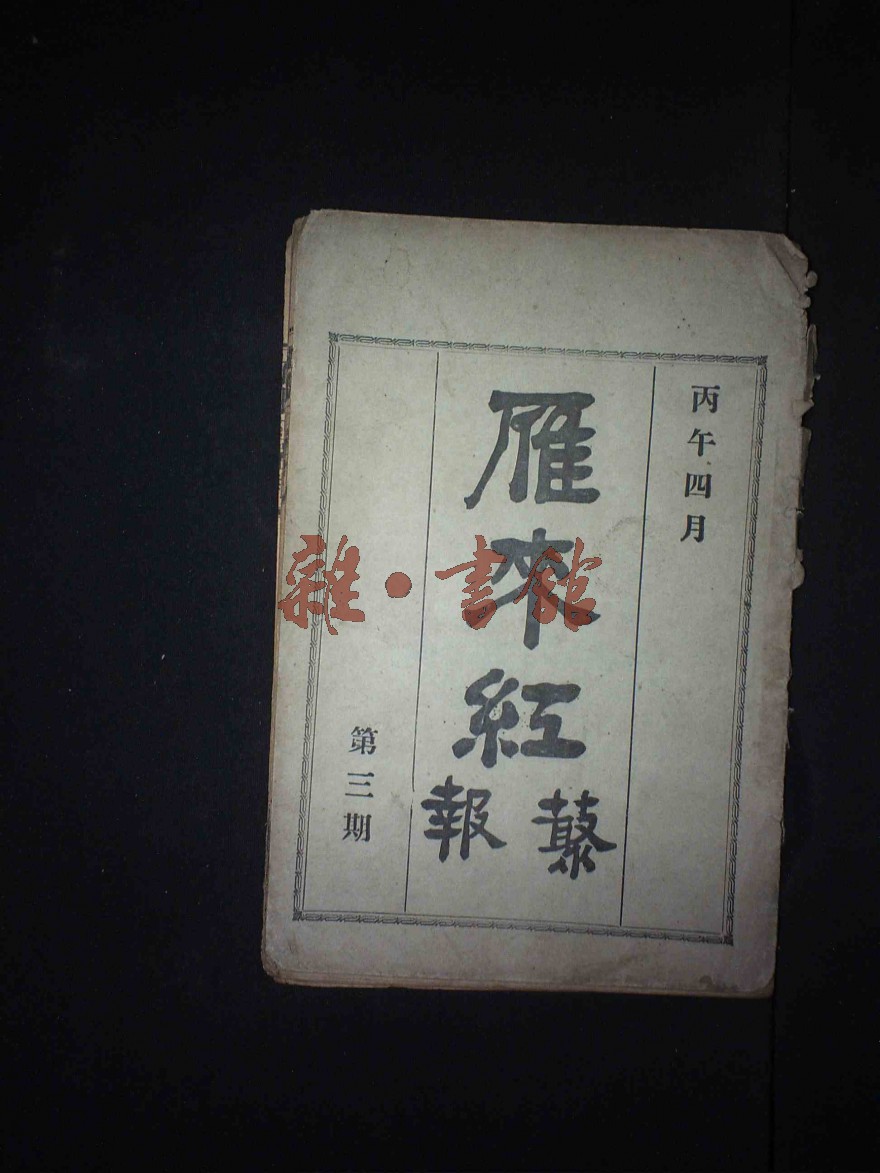 丙午四月
雁來紅
叢報
第三期
雜·書館